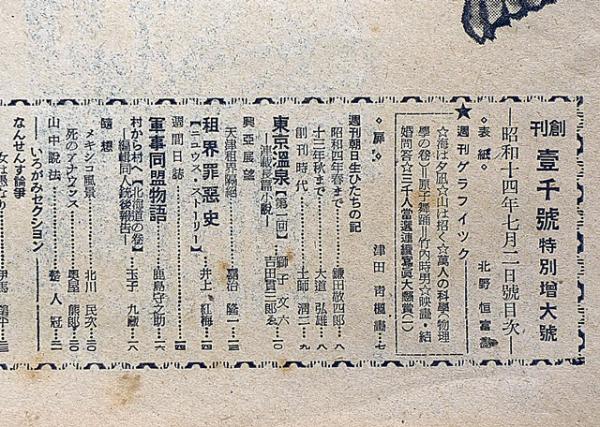 創刊壹千號特別增大號
―昭和十四年七月二日號目次―
◇表紙◇ 北野恒富畵
★週刊グラフイツク
☆海は夕凪☆山は招く☆萬人の科學〈物理
學の卷〉＝原子舞踊＝竹內時男☆映畵・結
婚問答☆三千人當選連續寫眞大懸賞(一)
◇扉◇ 津田靑楓畵…七
週刊朝日生ひたちの記
昭和四年春まで 鎌田敬四郎…八
十三年秋まで 大道弘雄…八
創刊時代 土師淸二…九
東京溫泉【第一回】 獅子文六
―連載長篇小說― 吉田貫三郎ゑ…一〇
興亞展望
天津租界隔絕 嘉治隆一…一三
租界罪惡史 井上紅梅…一四
【ニュウス・ストーリー】
週間日誌
軍事同盟物語 鹿島守之助…一六
村から村へ【北海道の卷】 玉子九藏…一八
―編輯同人銃後報告―
隨想
メキシコ風景 北川民次…二〇
死のアナウンス 奧屋熊郎…二〇
山中說法 藝人冠…三
―いろがみセクシヨン―
なんせんす論爭